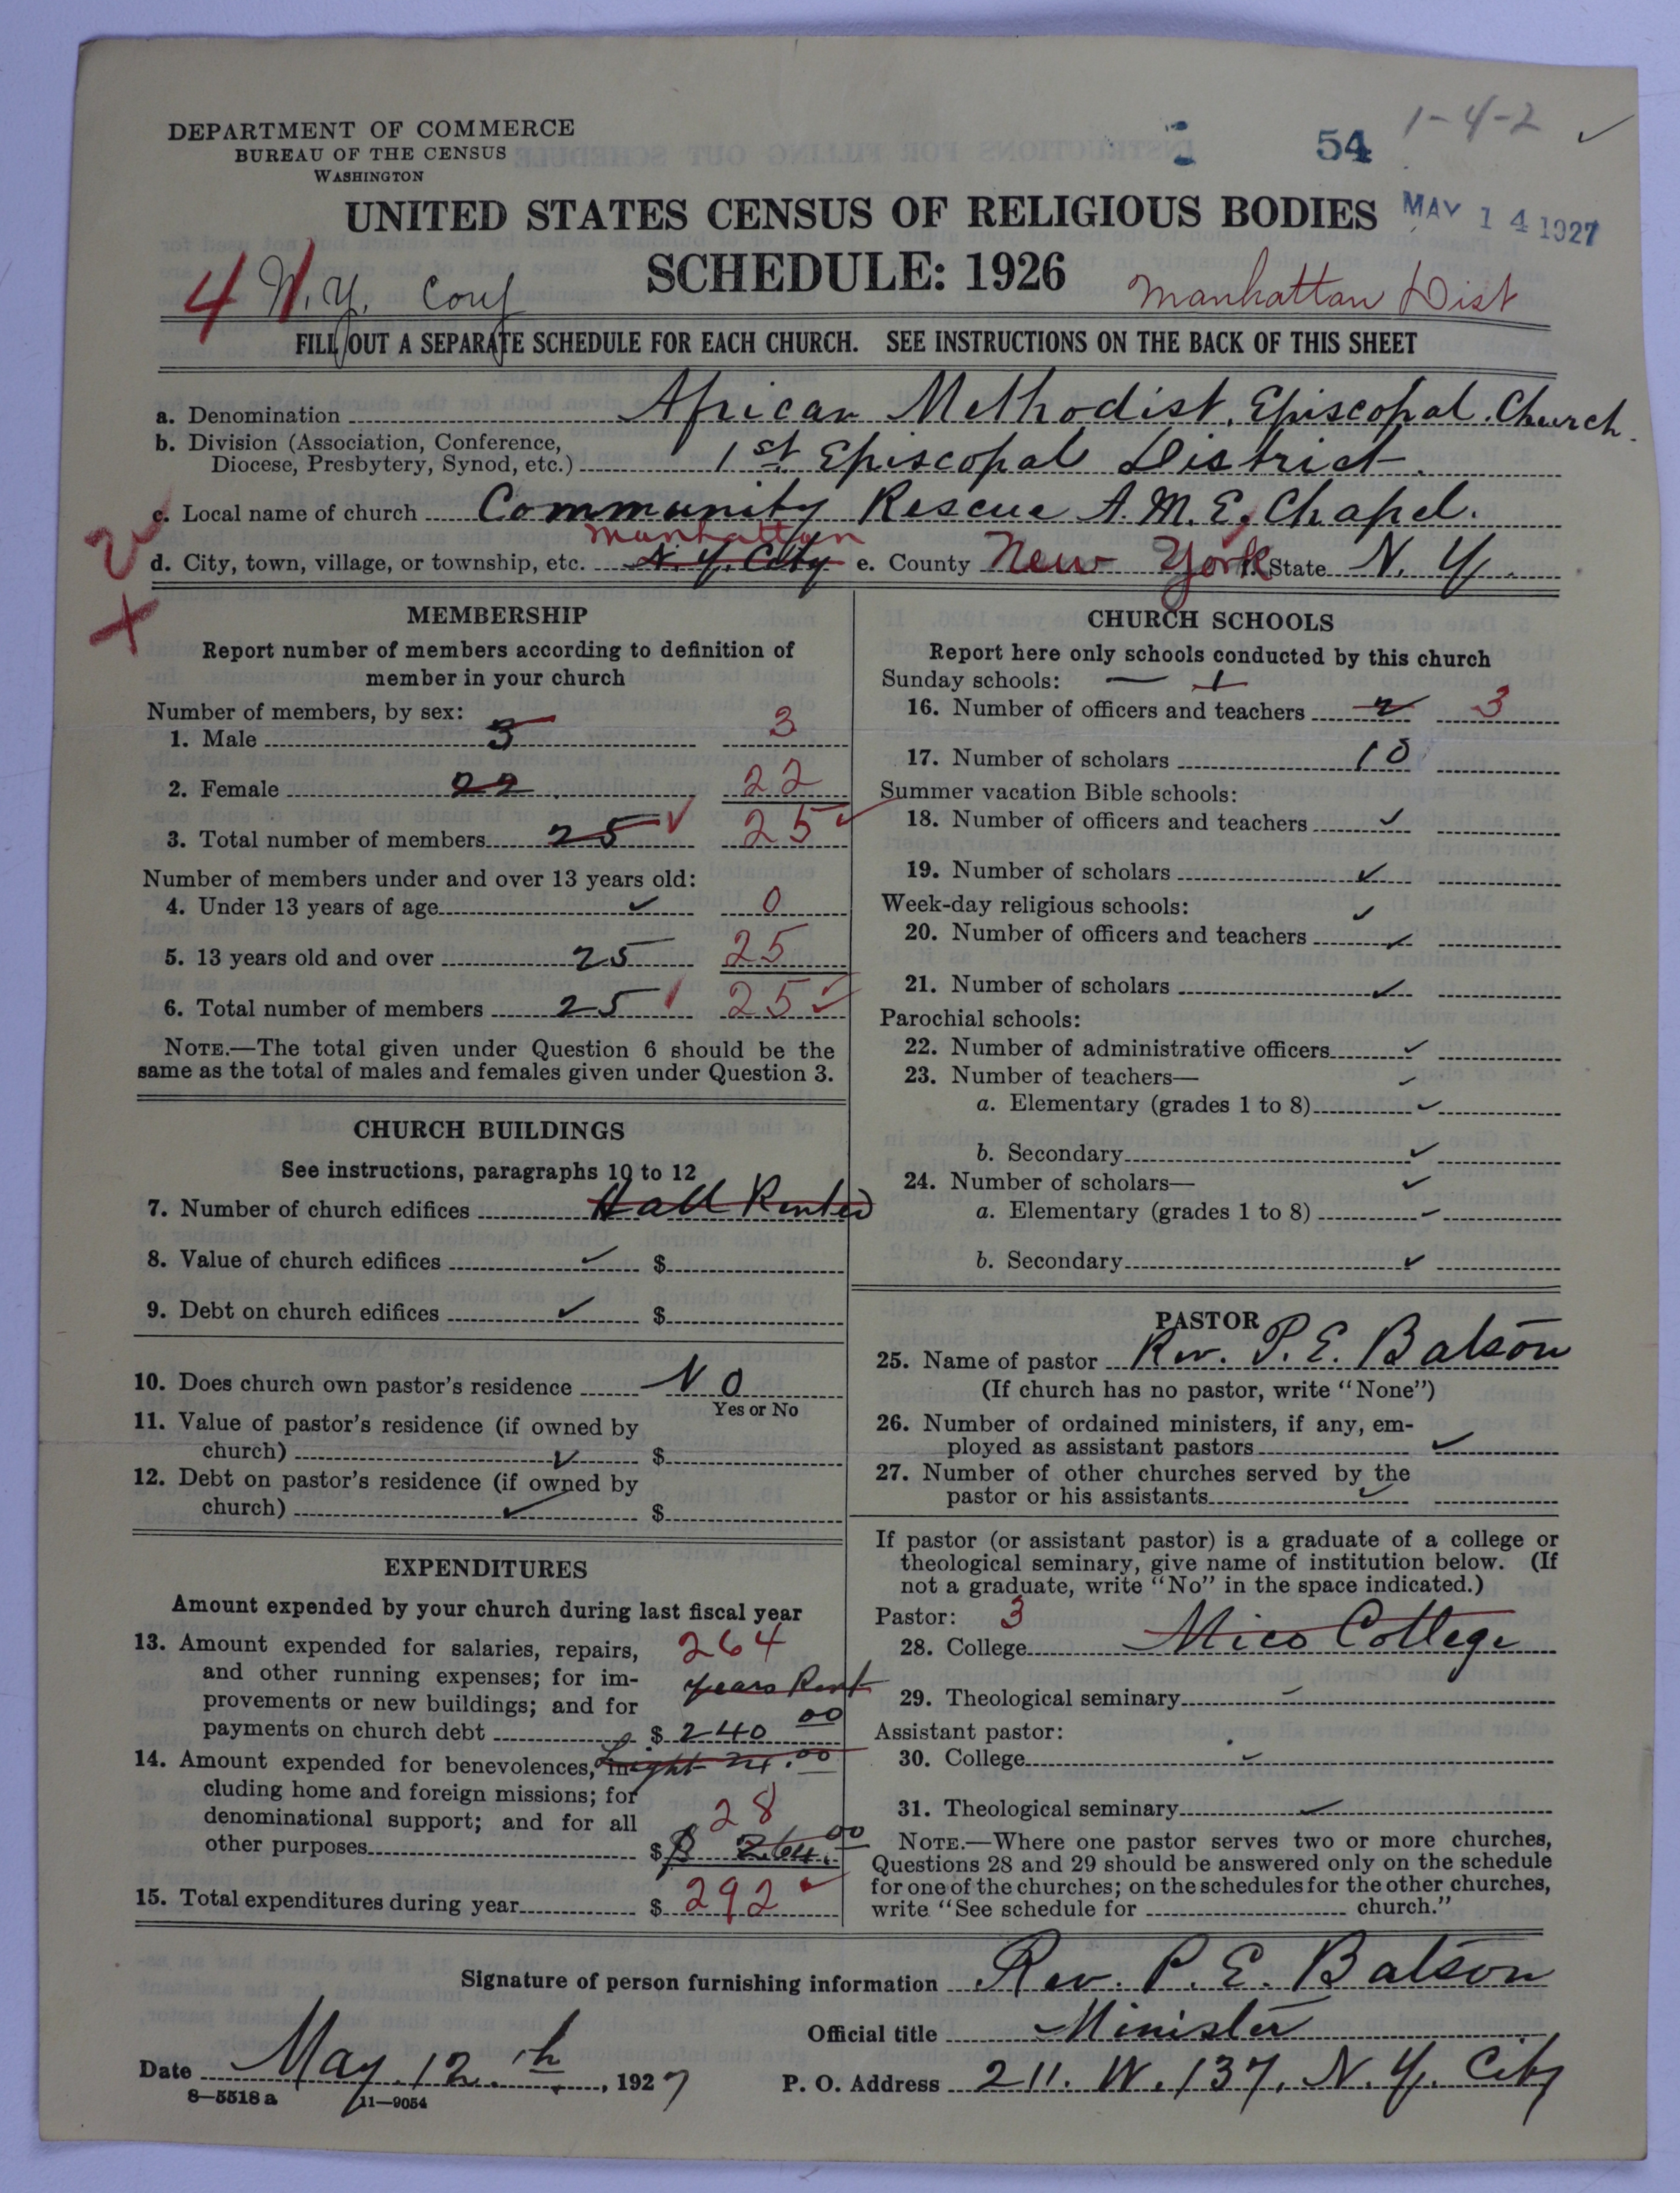 DEPARTMENT OF COMMERCE
BUREAU OF THE CENSUS
WASHINGTON
54
1-4-2
UNITED STATES CENSUS OF RELIGIOUS BODIES
MAY 14 1927
SCHEDULE: 1926
4 N.Y. Conf
Manhattan Dist
FILL OUT A SEPARATE SCHEDULE FOR EACH CHURCH. SEE INSTRUCTIONS ON THE BACK OF THIS SHEET
a. Denomination African Methodist. Episcopal. Church.
b. Division (Association, Conference,
Diocese, Presbytery, Synod, etc.) 1st Episcopal District.
c. Local name of church Community Rescue A.M.E. Chapel.
Manhattan
d. City, town, village, or township, etc. N.Y. City e. County New York f. State N.Y.
MEMBERSHIP
Report number of members according to definition of
member in your church
Number of members, by sex:
1. Male 3 3
2. Female 22 22
3. Total number of members 25 25
Number of members under and over 13 years old:
4. Under 13 years of age ✓ 0
5. 13 years old and over 25 25
6. Total number of members 25 25
NOTE.—The total given under Question 6 should be the
same as the total of males and females given under Question 3.
CHURCH BUILDINGS
See instructions, paragraphs 10 to 12
7. Number of church edifices Hall Rented
8. Value of church edifices ✓ $
9. Debt on church edifices ✓ $
10. Does church own pastor's residence No
Yes or No
11. Value of pastor's residence (if owned by
church) ✓ $
12. Debt on pastor's residence (if owned by
church) ✓ $
EXPENDITURES
Amount expended by your church during last fiscal year
13. Amount expended for salaries, repairs, 264
and other running expenses; for im-
years Rent
provements or new buildings; and for
payments on church debt $ 240 00
14. Amount expended for benevolences, in-
Light 24.00
cluding home and foreign missions; for
denominational support; and for all 28
other purposes $ $ 264.00
15. Total expenditures during year $ 292
CHURCH SCHOOLS
Report here only schools conducted by this church
Sunday schools: — 1
16. Number of officers and teachers 2 3
17. Number of scholars 18
Summer vacation Bible schools:
18. Number of officers and teachers ✓
19. Number of scholars ✓
Week-day religious schools: ✓
20. Number of officers and teachers ✓
21. Number of scholars ✓
Parochial schools:
22. Number of administrative officers ✓
23. Number of teachers— ✓
a. Elementary (grades 1 to 8) ✓
b. Secondary ✓
24. Number of scholars— ✓
a. Elementary (grades 1 to 8) ✓
b. Secondary ✓
PASTOR
25. Name of pastor Rev. P. E. Batson
(If church has no pastor, write "None")
26. Number of ordained ministers, if any, em-
ployed as assistant pastors ✓
27. Number of other churches served by the
pastor or his assistants ✓
If pastor (or assistant pastor) is a graduate of a college or
theological seminary, give name of institution below. (If
not a graduate, write "No" in the space indicated.)
Pastor: 3
28. College Mico College
29. Theological seminary
Assistant pastor:
30. College ✓
31. Theological seminary ✓
NOTE.—Where one pastor serves two or more churches,
Questions 28 and 29 should be answered only on the schedule
for one of the churches; on the schedules for the other churches,
write "See schedule for church."
Signature of person furnishing information Rev. P. E. Batson
Official title Minister
Date May. 12.th, 1927
P. O. Address 211. W. 137, N.Y. City
8—5518 a 11—9054